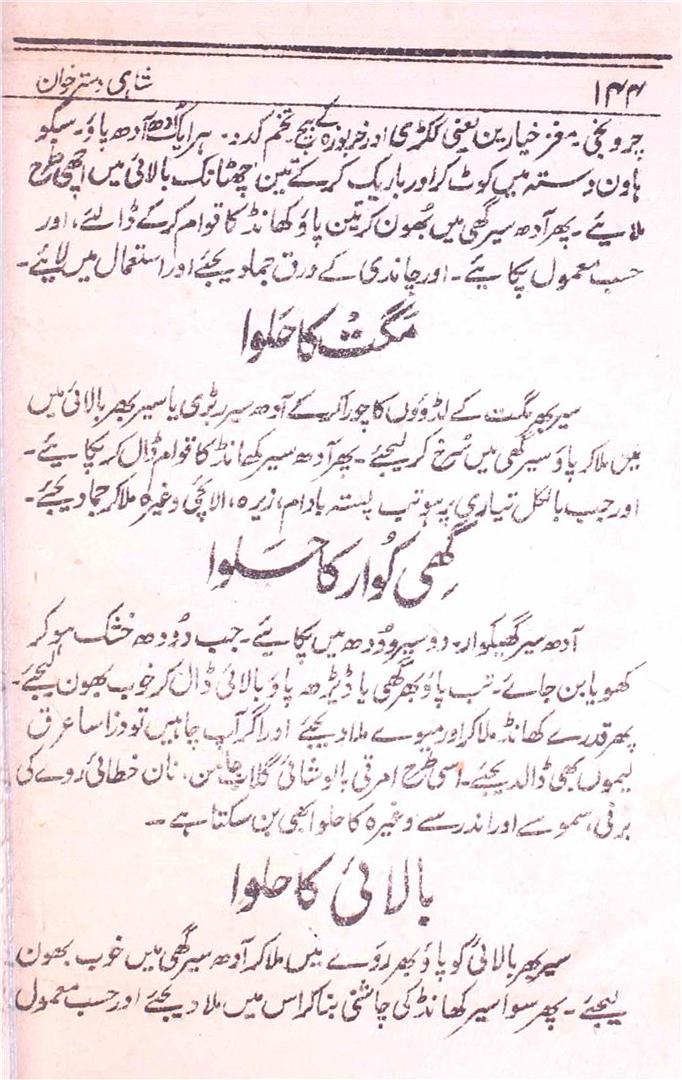 ۱۴۴ شاہی دسترخوان
چرونجی۔ مغز خیارین یعنی ککڑی اور خربوزہ کے بیج تخم کدو۔ ہر ایک آدھ آدھ پاؤ۔ سبکو
ہاون دستہ میں کوٹ کر اور باریک کر کے تین چھٹانک بالائی میں اچھی طرح
ملایئے۔ پھر آدھ سیر گھی میں بُھون کر تین پاؤ کھانڈ کا قوام کر کے ڈالئے، اور
حسب معمول پکایئے۔ اور چاندی کے ورق جملویجئے اور استعمال میں لایئے۔
مَگث کا حَلوا
سیر بھر مگت کے لڈوؤں کا چورا کر کے آدھ سیر ربڑی یا سیر بھر بالائی میں
میں ملا کر پاؤ سیر گھی میں سُرخ کر لیجئے۔ پھر آدھ سیر کھانڈ کا قوام ڈال کر پکایئے۔
اور جب بالکل تیاری پر ہو تب پستہ بادام، زیرہ، الائچی وغیرہ ملا کر جما دیجئے۔
گھی کُوار کا حَلوا
آدھ سیر گھیکوار۔ دو سیر دودھ میں پکایئے۔ جب دُودھ خشک ہو کر
کھویا بن جائے۔ تب پاؤ بھر گھی یا ڈیڑھ پاؤ بالائی ڈال کر خوب بھون لیجئے۔
پھر قدرے کھانڈ ملا کر اور میوے ملا دیجئے اور اگر آپ چاہیں تو ذرا سا عرق
لیموں بھی ڈالدیجئے۔ اسی طرح امرتی بالوشائی گلاب جامن، نان خطائی روے کی
برفی، سموسے اور اندرسے وغیرہ کا حلوا بھی بن سکتا ہے۔
بالائی کا حلوا
سیر بھر بالائی کو پاؤ بھر روے میں ملا کر آدھ سیر گھی میں خوب بھون
لیجئے۔ پھر سوا سیر کھانڈ کی چاشنی بنا کر اس میں ملا دیجئے اور حسب معمول